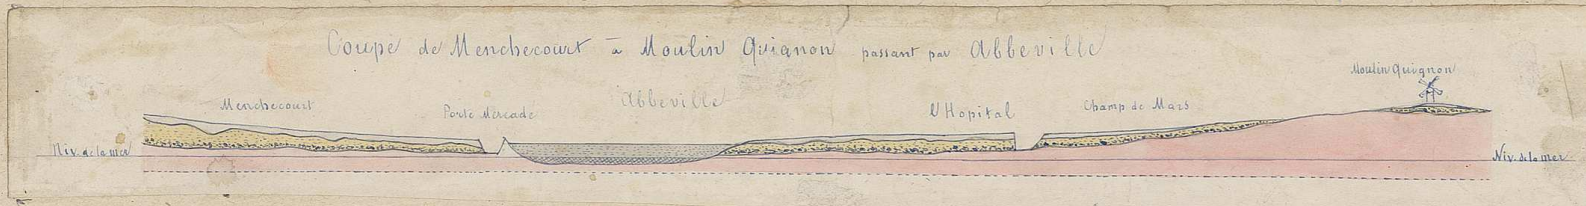 Coupe de Menchecourt à Moulin Quignon passant par Abbeville
Moulin Quignon
Menchecourt
Porte Mercadé
Abbeville
l'Hopital
Champ de Mars
Niv. de la mer
Niv. de la mer